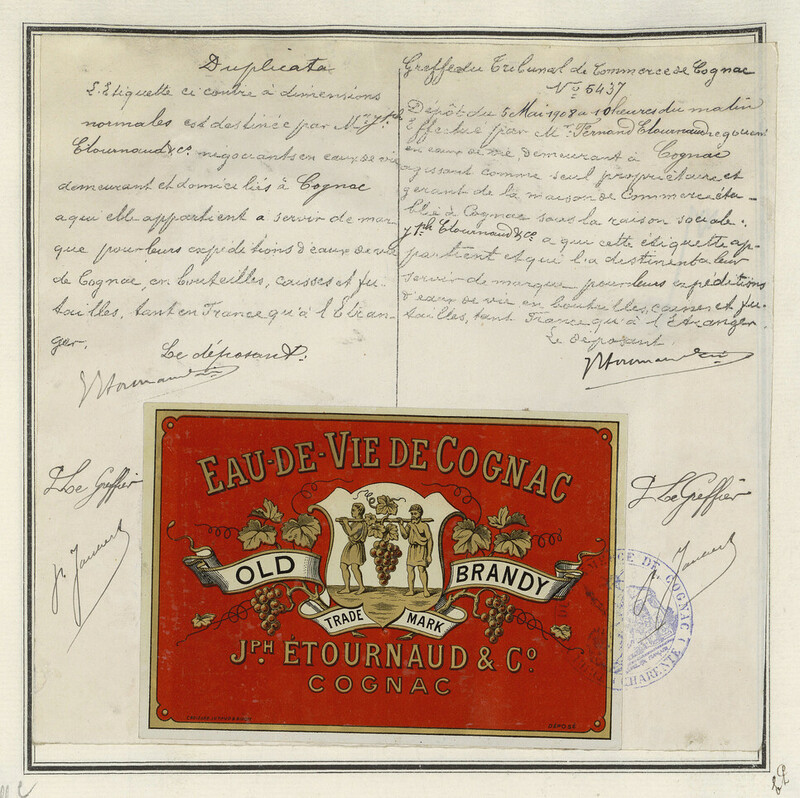 Duplicata
L'Etiquette ci contre à dimensions
normales est destinée par Mr Jph
Etournaud & Co negociants en eaux de vie
demeurant et domiciliés à Cognac
a qui elle appartient a servir de mar
que pour leurs expéditions d'eaux de vie
de Cognac, en bouteilles, caisses et fu-
tailles, tant en France qu'à l'Etran-
ger.
Le déposant.
Greffe du Tribunal de Commerce de Cognac
No 5437
Dépôt du 5 Mai 1908 a 10 heures du matin
Effectué par Mr. Fernand Etournaud negociant
en eaux de vie, demeurant à Cognac
agissant comme seul propriétaire et
gerant de la maison de Commerce éta-
blie à Cognac sous la raison sociale:
Jph Etournaud & Co a qui cette étiquette ap-
partient et qui l'a destinent a leur
servir de marque pour leurs expéditions
d'eaux de vie en bouteilles, caisses et fu-
tailles, tant France qu'à l'Etranger
Le déposant
Le Greffier
Le Greffier
EAU-DE-VIE DE COGNAC
OLD BRANDY
TRADE MARK
JPH ETOURNAUD & Co
COGNAC
DÉPOSÉ
DE COGNAC
CHARENTE